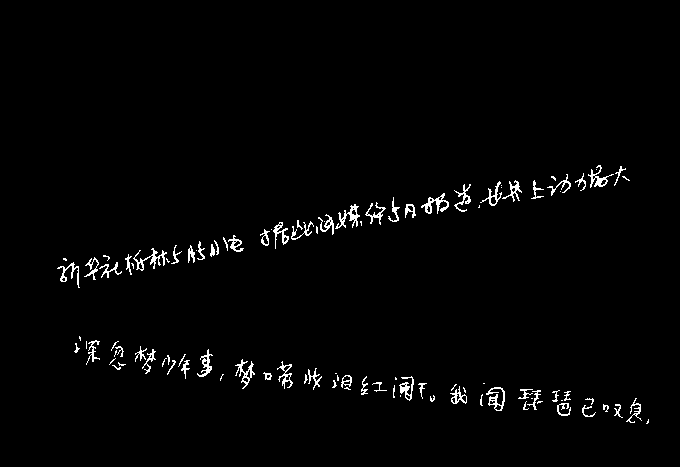 新华社柏林5月5日电 据此间媒体5月报道,世界上动力最大
深忽梦少年事,梦啼妆泪红阑干。我闻琵琶已叹息,